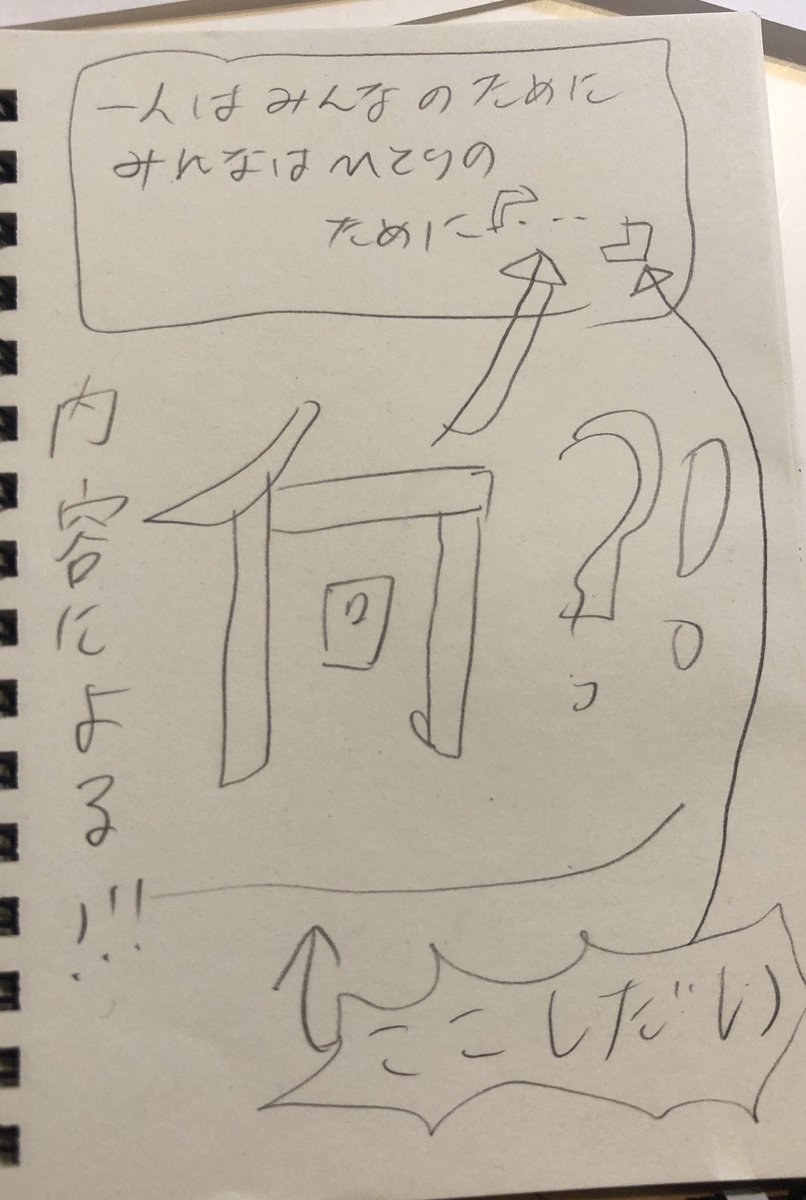 一人はみんなのために
みんなはMZ9の
ために『・・・』
何?!
内容による!!!
ここしだい